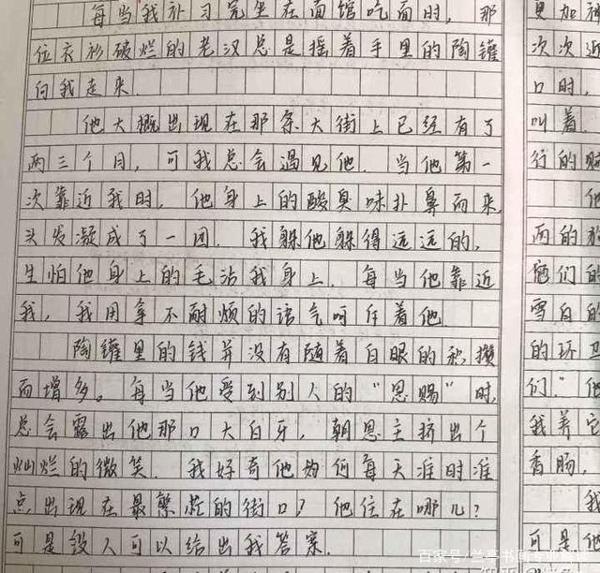 每当我补习完坐在面馆吃面时，那
位衣衫破烂的老汉总是摇着手里的陶罐
向我走来.
他大概出现在那条大街上已经有了
两三个月，可我总会遇见他.当他第一
次靠近我时，他身上的酸臭味扑鼻而来，
头发凝成了一团.我躲他躲得远远的，
生怕他身上的毛沾我身上.每当他靠近
我，我用拿不耐烦的语气呵斥着他
陶罐里的钱并没有随着白眼的积攒
而增多。每当他受到别人的“恩赐”时，
总会露出他那口大白牙，朝恩主挤出个
灿烂的微笑.我好奇他为何每天准时准
点出现在最繁茫的街口？他住在哪儿？
可是没人可以给出我答案.
更加
次次近
口时，
叫着.
行的
他
两的
们的
雪白的
的环卫
们.”他
我养它
香肠，
我
可是他
百家号/兰亭书画